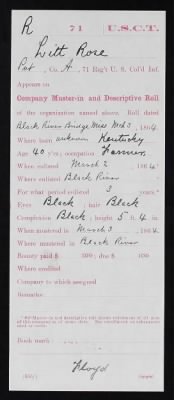 R 71 U.S.C.T.
Litt Rose
Pvt, Co. A, 71 Reg't U. S. Col'd Inf.
Appears on
Company Muster-in and Descriptive Roll
of the organization named above. Roll dated
Black River Bridge Miss Mch 3, 1864.
Where born unknown Kentucky
Age 40 y'rs; occupation Farmer
When enlisted March 2, 1864
Where enlisted Black River
For what period enlisted 3 years.
Eyes Black; hair Black
Complexion Black; height 5 ft. 4 in.
When mustered in March 3, 1864.
Where mustered in Black River
Bounty paid $ 100; due $ 100
Where credited
Company to which assigned
Remarks:
Book mark:
Floyd